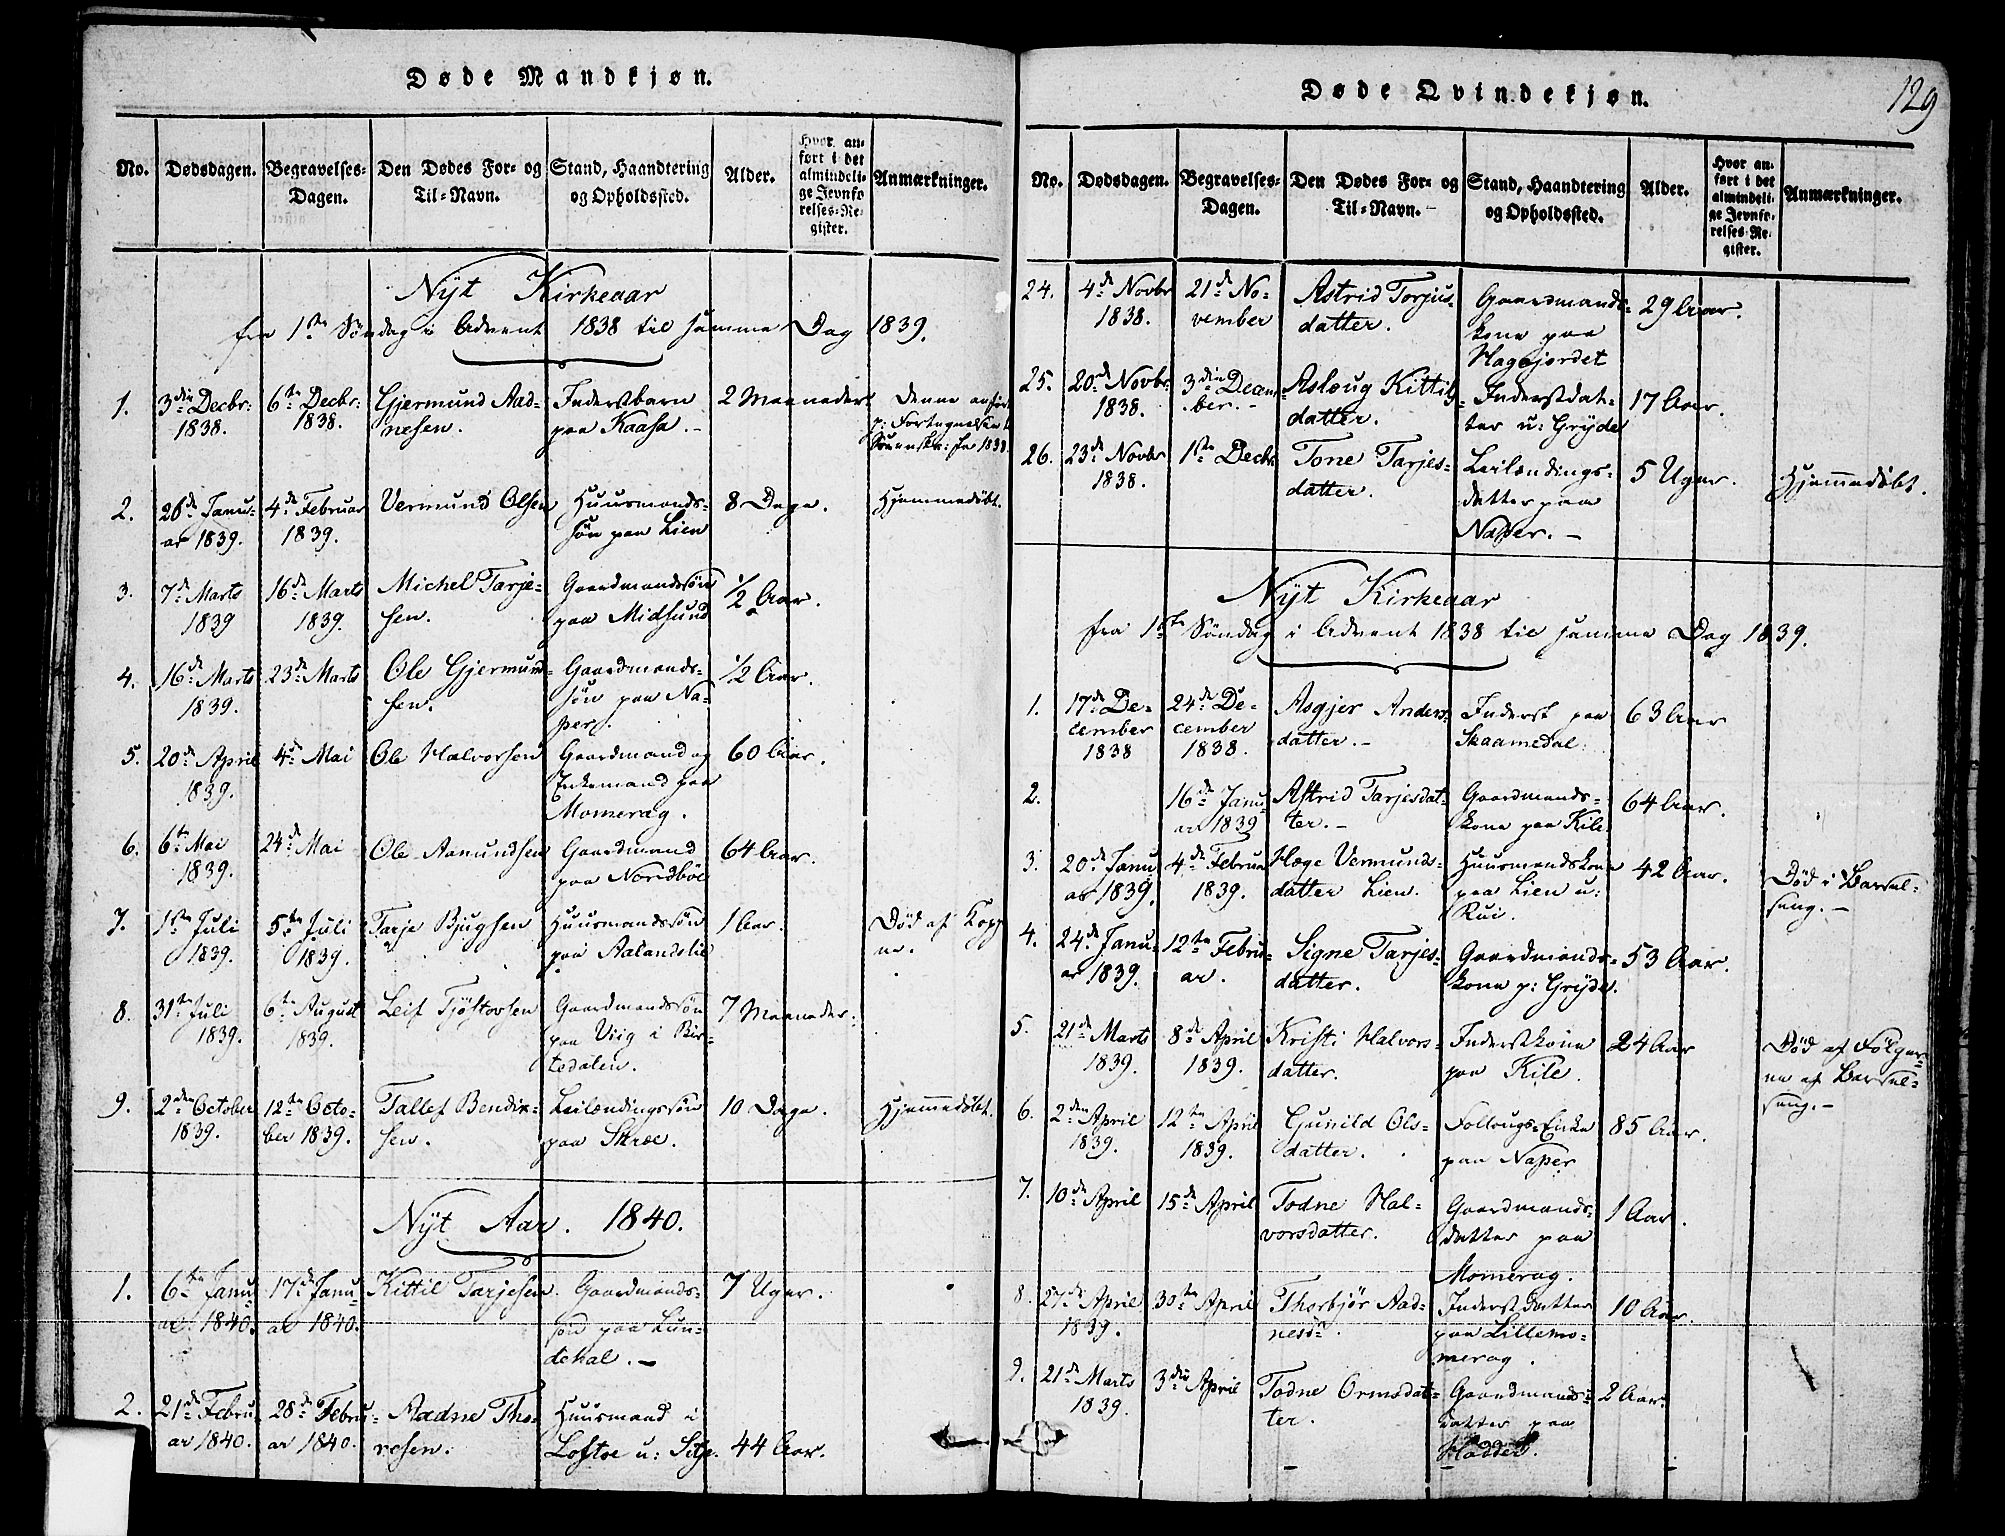 Døde Mandkjøn.
No.
Dødsdagen.
Begravelses-
Dagen.
Den Dødes For- og
Til-Navn.
Stand, Haandtering
og Opholdssted.
Alder.
Hvor an-
ført i det
almindeli-
ge Jevnfø-
relses-Re-
gister.
Anmærkninger.
Nyt Kirkeaar
fra 1ste Søndag i Advent 1838 til samme Dag 1839.
1.
3die Decbr:
1838.
6te Decbr:
1838.
Gjermund Aad-
nesen.
Inderstbarn
paa Kaasa.-
2 Maaneder
Denne anført
p: Fortegnelsen
1838.
2.
26de Janu-
ar 1839.
4de Februar
1839.
Vermund Olsen
Huusmands-
søn paa Lien
8 Dage.
Hjemmedøbt.
3.
7de Marts
1839
16de Marts
1839.
Michel Tarje-
sen.
Gaardmandssøn
paa Midsund
1/2 Aar.
4.
16de Marts
1839.
23de Marts
Ole Gjermund-
sen.
Gaardmands-
søn paa Na-
per.
1/2 Aar.
5.
20de April
1839.
4de Mai
Ole Halvorsen
Gaardmand og
Enkemand paa
Momerag.
60 Aar.
6.
6te Mai
1839.
24de Mai
Ole Aamundsen
Gaardmand
paa Nordbøe
64 Aar.
7.
1ste Juli
1839.
5te Juli
1839.
Tarje Bjughsen
Huusmandssøn
paa Aalandslie
1 Aar.
Død af Kopp
er.
8.
31te Juli
1839.
6te August
1839.
Leif Tjøstovsen
Gaardmandssøn
paa Viig i Bir-
tedalen.
7 Maaneder.
9.
2den October
1839.
12te Octo-
ber 1839.
Tallef Bendix-
sen.
Leilændingssøn
paa Skree.
10 Dage.
Hjemmedøbt.
Nyt Aar. 1840.
1.
6te Janu
ar 1840.
17de Janu-
ar 1840.
Kittil Tarjesen.
Gaardmands-
søn paa Lun-
dekal.-
7 Uger.
2.
21de Febru-
ar 1840.
28de Febru-
ar 1840.
Aadne Tho-
resen.
Huusmand i
Loftoe u: Sitje.
44 Aar.
Døde Qvindekjøn.
129
No.
Dødsdagen.
Begravelses-
Dagen.
Den Dødes For- og
Til-Navn.
Stand, Haandtering
og Opholdssted.
Alder.
Hvor an-
ført i det
almindeli-
ge Jevnfø-
relses-Re-
gister.
Anmærkninger.
24.
4de Novbr
1838.
21de No-
vember
Astrid Torjus-
datter.
Gaardmands-
kone paa
Hagejordet
29 Aar.
25.
20de Novbr
1838.
3die Decem-
ber.-
Aslaug Kittils-
datter.
Inderstdat-
ter u: Gryde
17 Aar.
26.
23de Novbr
1838.
1ste Decbr
Tone Tarjes-
datter.
Leilændings-
datter paa
Naper.-
5 Uger.
Hjemmedøbt.
Nyt Kirkeaar
fra 1ste Søndag i Advent 1838 til samme Dag 1839.
1.
17de De-
cember
1838
24de De-
cember
1838.
Asgjer Anders-
datter.-
Inderst paa
Skaamedal.
63 Aar
2.
16de Janu
ar 1839
Astrid Tarjesdat-
ter.-
Gaardmands-
kone paa Kile
64 Aar.
3.
20de Janu
ar 1839.
4de Februar
1839.
Hæge Vermunds-
datter Lien.
Huusmandskone
paa Lien u:
Rui.
42 Aar.
Død i Barsel-
seng.-
4.
24de Janu-
ar 1839.
12te Febru-
ar.
Signe Tarjes-
datter.
Gaardmands-
kone p: Gryde.
53 Aar.
5.
21de Marts
1839.
8de April
1839.
Kristi Halvors-
datter.
Inderstkone
paa Kile.
24 Aar
Død af Følger-
ne af Barsel-
seng.-
6.
2den April
1839.
12te April
1839.
Gunild Ols-
datter.
Follougs-Enke
paa Naper
85 Aar.
7.
10de April
15de April
Todne Hal-
vorsdatter.
Gaardmands-
datter paa
Momerag.
1 Aar.
8.
27de April
1839.
30te April
Thorbjør Aad-
nesdr.
Inderstdatter
paa Lillemo-
merag.
10 Aar.
9.
21de Marts
1839.
3die April
Todne Ormsdat-
ter.
Gaardmands-
datter paa
Hadder.
2 Aar.